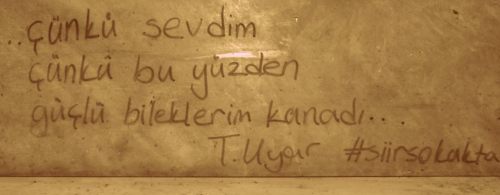 ..çünkü sevdim
çünkü bu yüzden
güçlü bileklerim kanadı...
T.Uyar #siirsokakta